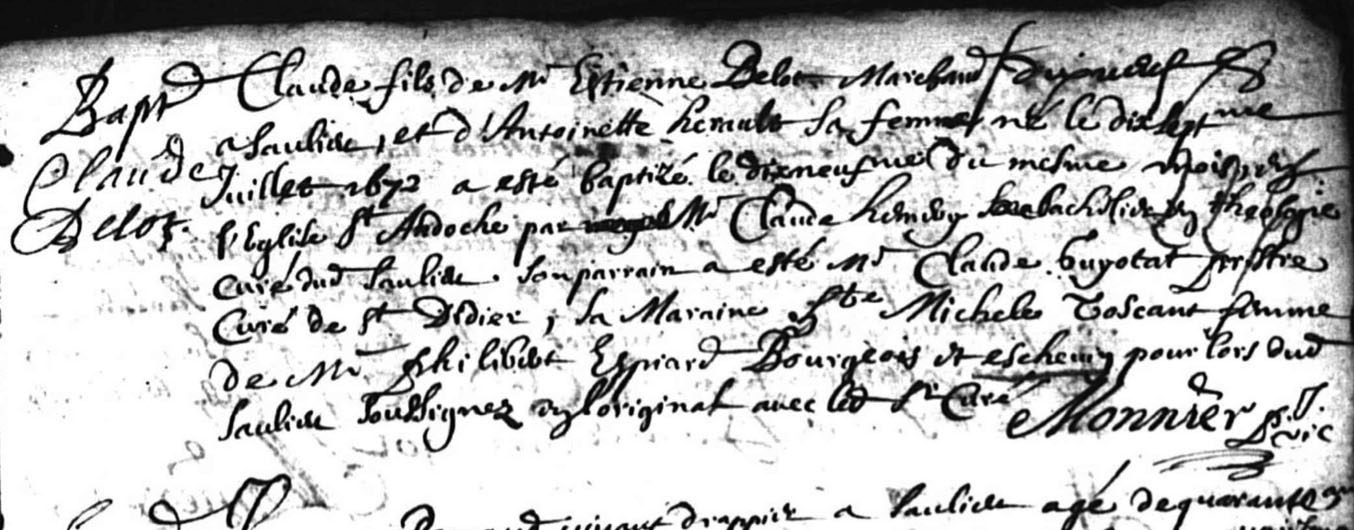 Bapt
Claude
Belot.
Claude fils de Mr Estienne Belot Marchand
a Saulieu, et d'Antoinette herault sa femme, né le dixsept me
Juillet 1672 a esté baptizé le dixneufme du mesme mois en
l'Eglise St Andoche par Mr Claude bachelier en theologie
curé dud Saulieu. Son parrain a esté Mr Claude Guyotat prestre
Curé de St Didier, sa Maraine Michele Toscant femme
de Mr Philibert Espiard Bourgeois et eschevin pour lors dud
Saulieu soubsignez en l'original avec led Sr Curé
Monnier
a Saulieu agé de quarante